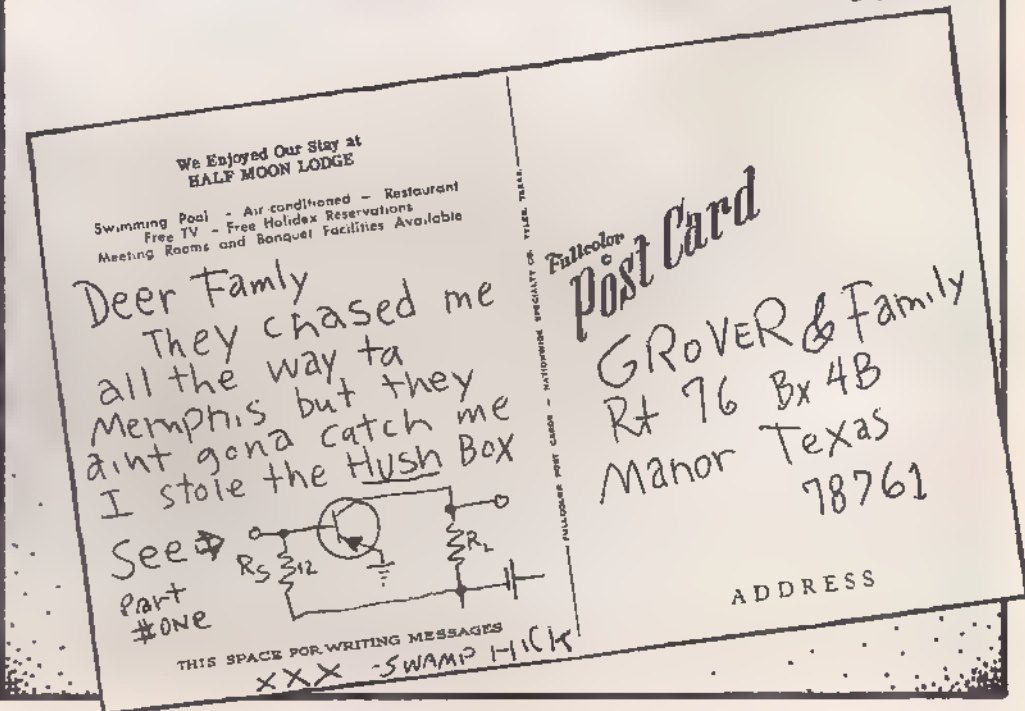 We Enjoyed Our Stay at
HALF MOON LODGE
Swimming Pool - Air-conditioned - Restaurant
Free TV - Free Holidex Reservations
Meeting Rooms and Banquet Facilities Available
Deer Famly
They chased me
all the way ta
Memphis but they
aint gona catch me
I stole the Hush Box
See
Part
#ONE
RS 12
RL
THIS SPACE FOR WRITING MESSAGES
XXX -SWAMP HICK
FULLCOLOR POST CARDS - NATIONWIDE SPECIALTY CO. TYLER, TEXAS
Fullcolor
Post Card
GROVER & Family
Rt 76 Bx 4B
Manor Texas
78761
ADDRESS